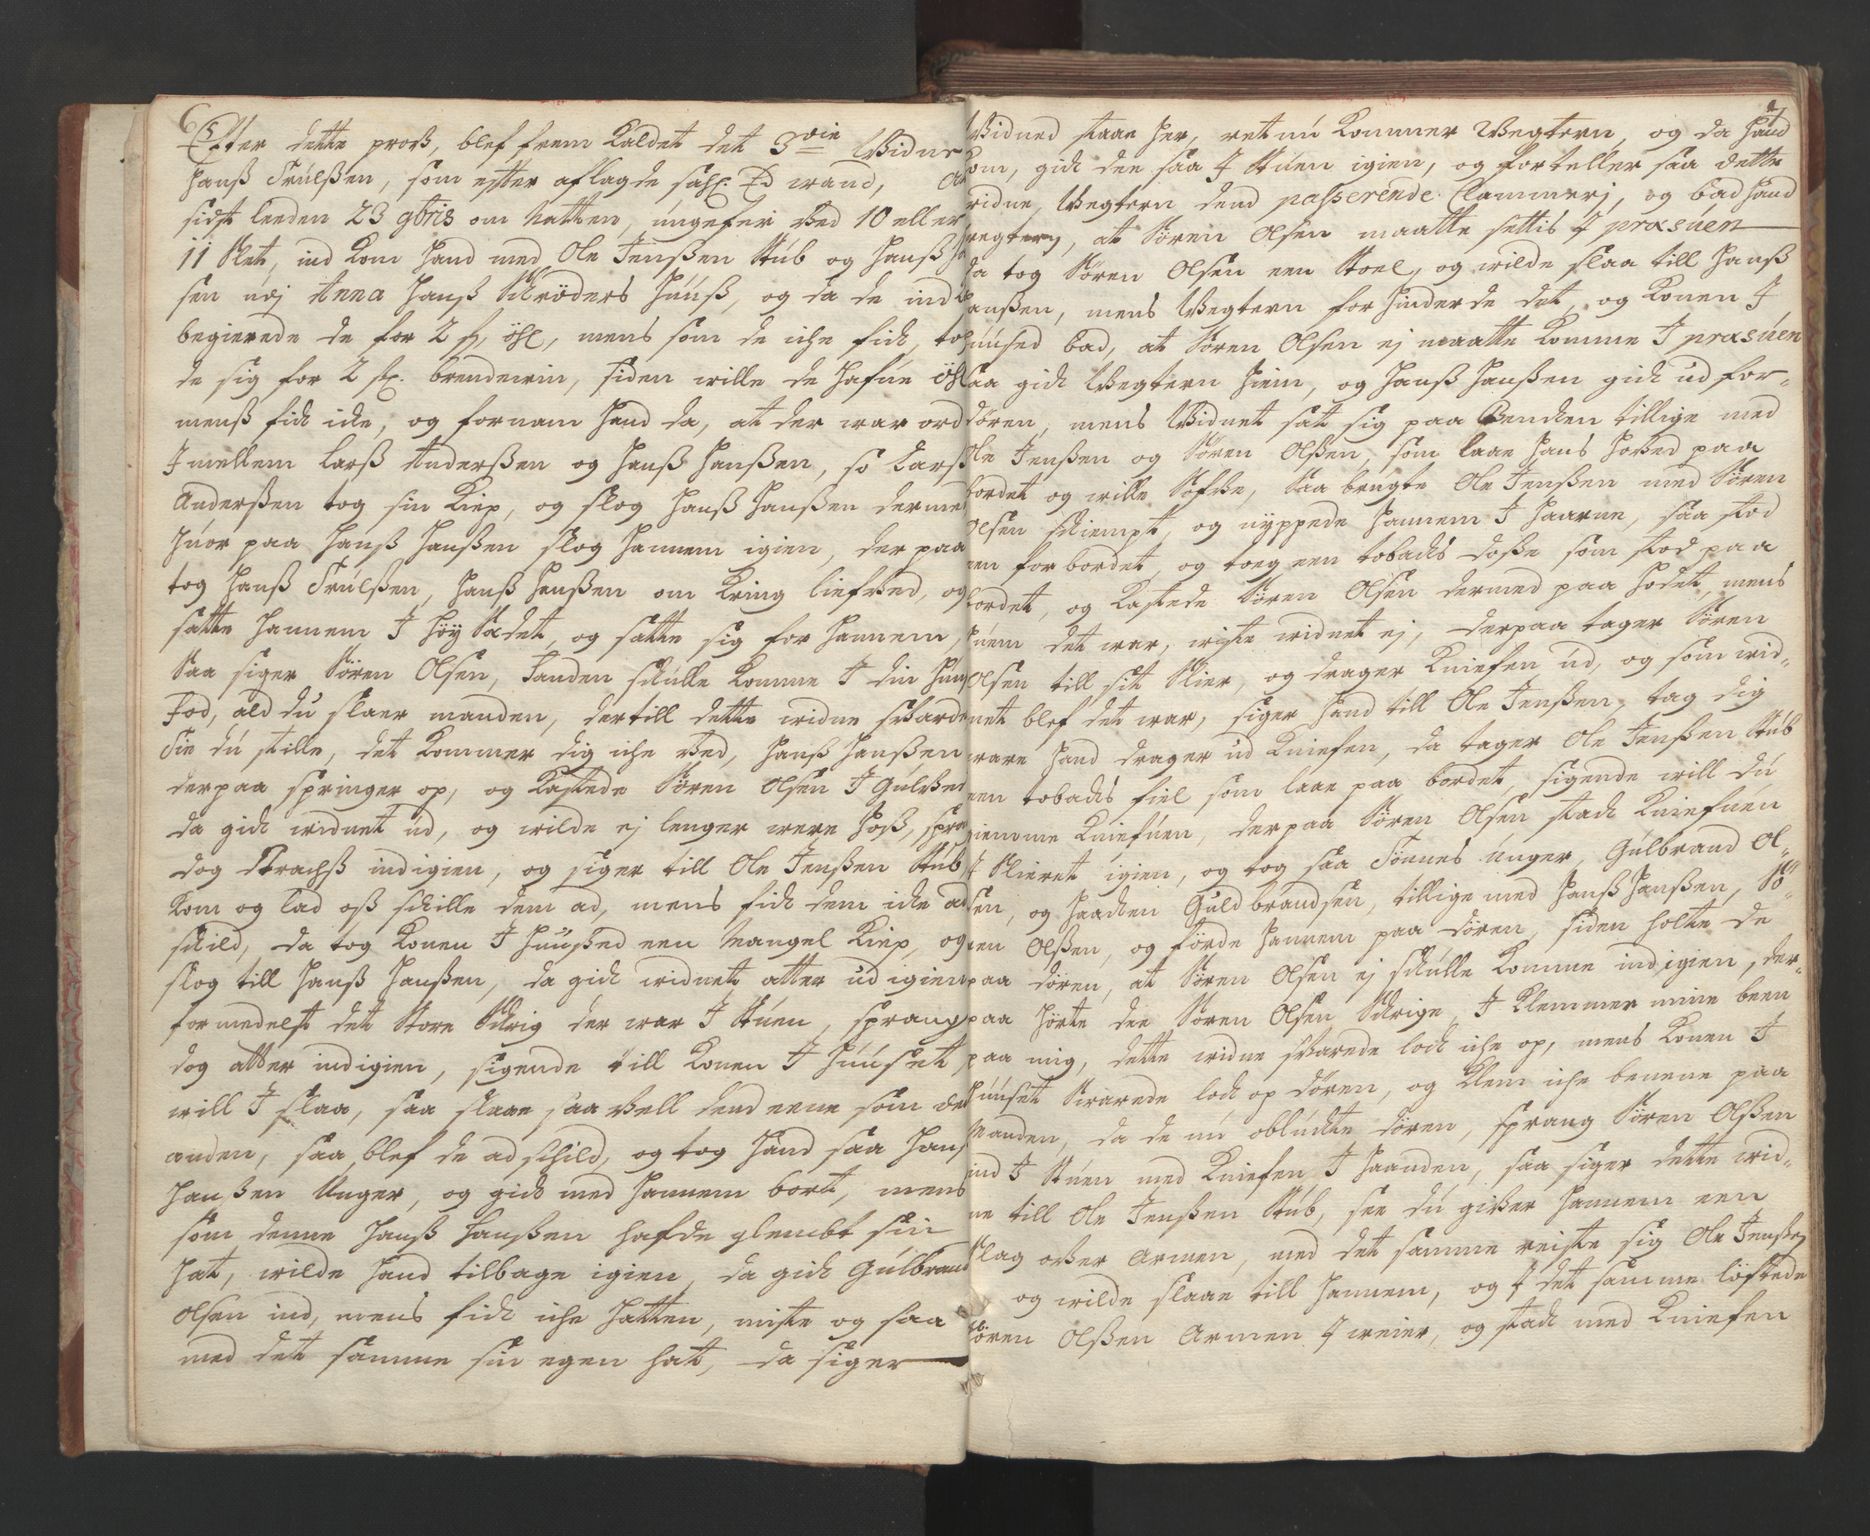 6
Efter dette pross, blef frem Kaldet det 3die Widne
Hanss Trúlssen, som efter aflagde sahl: Ed wand, At
sidst leeden 23 9bris om Natten, úngefer Ved 10 eller
11 Slet, ind Kom Hand med Ole Jenssen Stúb og Hanss Han
sen údj Anna Hanss Schröders Húúss, og da de ind Ko
begierede de for 2 s, öhl, mens som de iche fich, toh
de sig for 2 sk. brendewin, siden wille de hafúe öhl
menss fich iche, og fornam Hand da, at der war ord
Jmellem Larss Anderssen og Hanss Hanssen, so Larss
Anderssen tog sin Kiep, og slog Hanss Hanssen dermed
húor paa Hanss Hanssen slog hannem igien, der paa
tog Hanss Trúlssen, Hanss Hanssen om Kring liefVed, og
satte hannem J Höy Sædet, og satte sig for hannem,
Saa siger Sören Olsen, Fanden schúlle Komme J din húnd
Fod, ald dú slaer manden, dertill dette widne sVarde
Tie dú stille, det Kommer dig iche Ved, Hanss Hanssen
derpaa springer op, og Kastede Sören Olsen J GúlVed
da gich widnet úd, og wilde ej lenger were hoss, sprang
dog Strachss indigien, og siger till Ole Jenssen Stúb
Kom og Lad oss schille dem ad, mens fich dem iche ad
schild, da tog Konen J Húússed een Mangel Kiep, og
slog till Hanss Hanssen, da gich widnet atter ud igien
formedelst det Store Schrig der war J Stúen, sprang
dog atter indigien, sigende till Konen J Húúset,
will J slaa, saa slaae saa Vell dend eene som den
anden, saa blef de ad schild, og tog hand saa Hans
Hanssen Unger, og gich med hannem bort, mens
som denne Hanss Hanssen hafde glembt sin
hat, wilde hand tilbage igien, da gich Gúlbrand
Olsen ind, mens fich iche hatten, miste og saa
med det samme sin egen hat, da siger
7
Widned staae her, ret nú Kommer Wegtern, og da hand
Kom, gich den saa J Stúen igien, og forteller saa dette
widne, Wegtern dend passerende Clammerj, og bad hand
wegtern, at Sören Olsen maatte settis J præsúen
da tog Sören Olsen een Stoel, og wilde slaa till Hanss
Hanssen, mens Wegtern forhinderde det, og Konen J
húúsed bad, at Sören Olsen ej maatte Komme J præsúen
saa gich Wegtern hiem, og Hanss Hanssen gich ud for-
dören, mens Widnet sat sig paa Benchen tillige med
Ole Jenssen og Sören Olssen, som laae hans hoVed paa
bordet og wille SofVe, Saa brugte Ole Jenssen med Sören
Olsen Schiempt, og nyppede hannem J haarne, saa stod
een for bordet, og toeg een tobachs dosse som stod paa
bordet, og Kastede Sören Olsen dermed paa hodet, mens
húem det war, wiste widnet ej, derpaa tager Sören
Olsen till sit Skier, og drager Kniefen úd, og som wid-
net blef det war, siger hand till Ole Jenssen, tag dig
ware hand drager ud Kniefen, da tager Ole Jenssen Stúb
een tobachs fiel som laae paa bordet, sigende will dú
giemme Kniefúen, derpaa Sören Olsen stach Kniefúen
J Skieret igien, og tog saa Tönnes Unger, Gúlbrand Ol-
sen, og Haachen Guldbrandsen, tillige med Hanss Hanssen, Sö-
ren Olssen, og förde hannem paa dören, siden holte de
paa dören, at Sören Olsen ej schúlle Komme indigien, der-
paa hörte den Sören Olsen Schrige, J Klemmer mine been
paa mig, dette widne sVarede loch iche op, mens Konen J
húúset swarede loch op dören, og Klem iche benene paa
Manden, da de nú oblúchte dören, sprang Sören Olssen
ind J Stúen med Kniefen J haanden, saa siger dette wid-
ne till Ole Jenssen Stúb, see dú giVer hannem een
Slag oVer Armen, med det samme reiste sig Ole Jenssen
og wilde slaae till hannem, og J det samme löftede
Sören Olssen Armen J weier, og stach med Kniefen